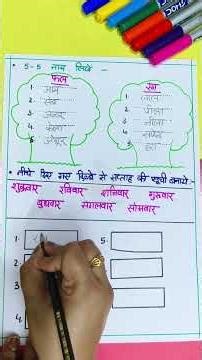 • 5-5 नाम लिखो :-
फल
1. आम
2. सेब
3. अनार
4. केला
5. अंगूर
रंग
1. लाल
2. पीला
3. नीला
4. सफेद
5. हरा
• नीचे दिए गए डिब्बे से सप्ताह की सूची बनाओ :-
शुक्रवार रविवार शनिवार गुरूवार
बुधवार मंगलवार सोमवार
1.
5.
4.